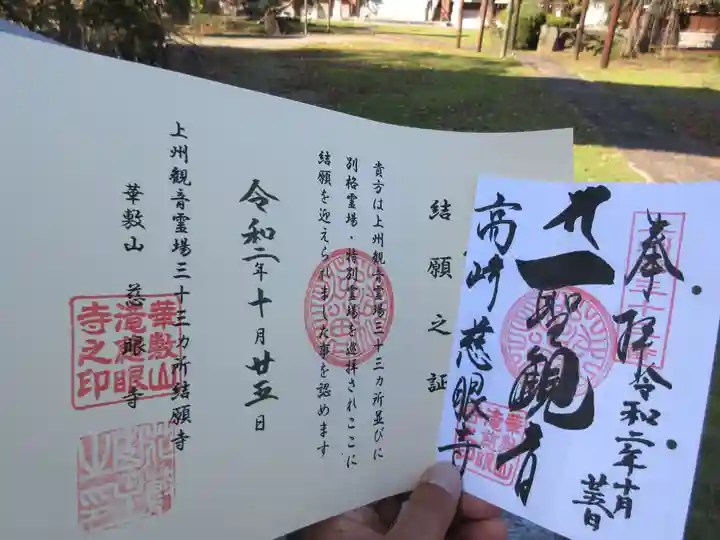 結願之証
貴方は上州観音霊場三十三カ所並びに
別格霊場・特別霊場を巡拝されここに
結願を迎えられました事を認めます
令和二年十月廿五日
上州観音霊場三十三カ所結願寺
華敷山 慈眼寺
華敷山
滝慈眼
寺之印
奉拝
令和二年十月
廿五日
聖観音
高崎慈眼寺
華敷山
滝慈眼
寺之印